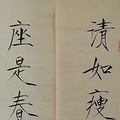 请如瘦
座是春